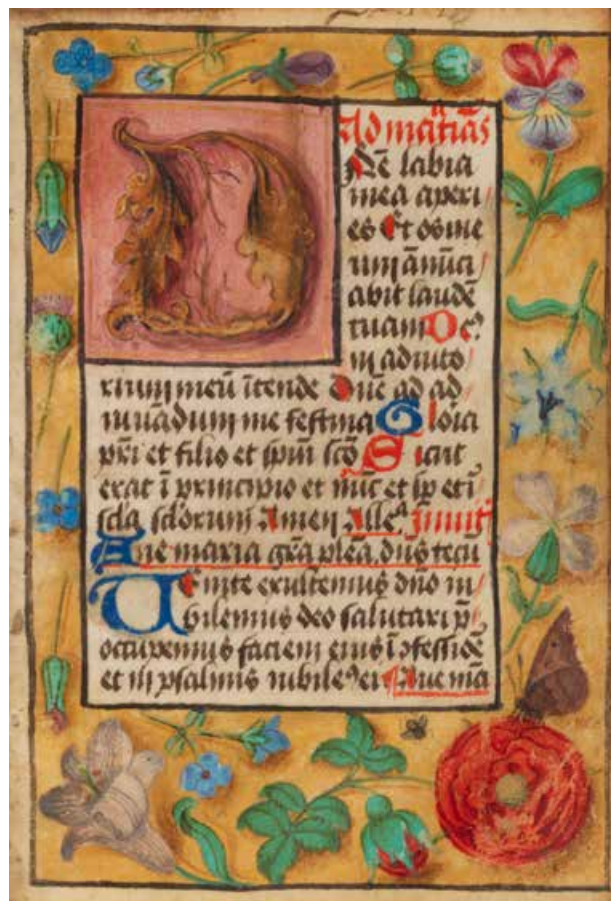 Ad mātinas
Dn̄e labia
mea aperi
es Et os me
um ānnūci
abit laudē
tuam De9
in adiuto
rium meū ītende Dn̄e ad ad
iuuādum me festina Gloria
pr̄i et filio et sp̄iu sc̄o Sicut
erat ī principio et nūc et sp̄ et ī
sc̄la sc̄lorum Amen All̄a
Aue maria gr̄a plēa dn̄s tecū
Uenite exultemus dn̄o iu
bilemus deo salutari
occupemus faciem eius
et in psalmis iubile9 ei Aue m̄a